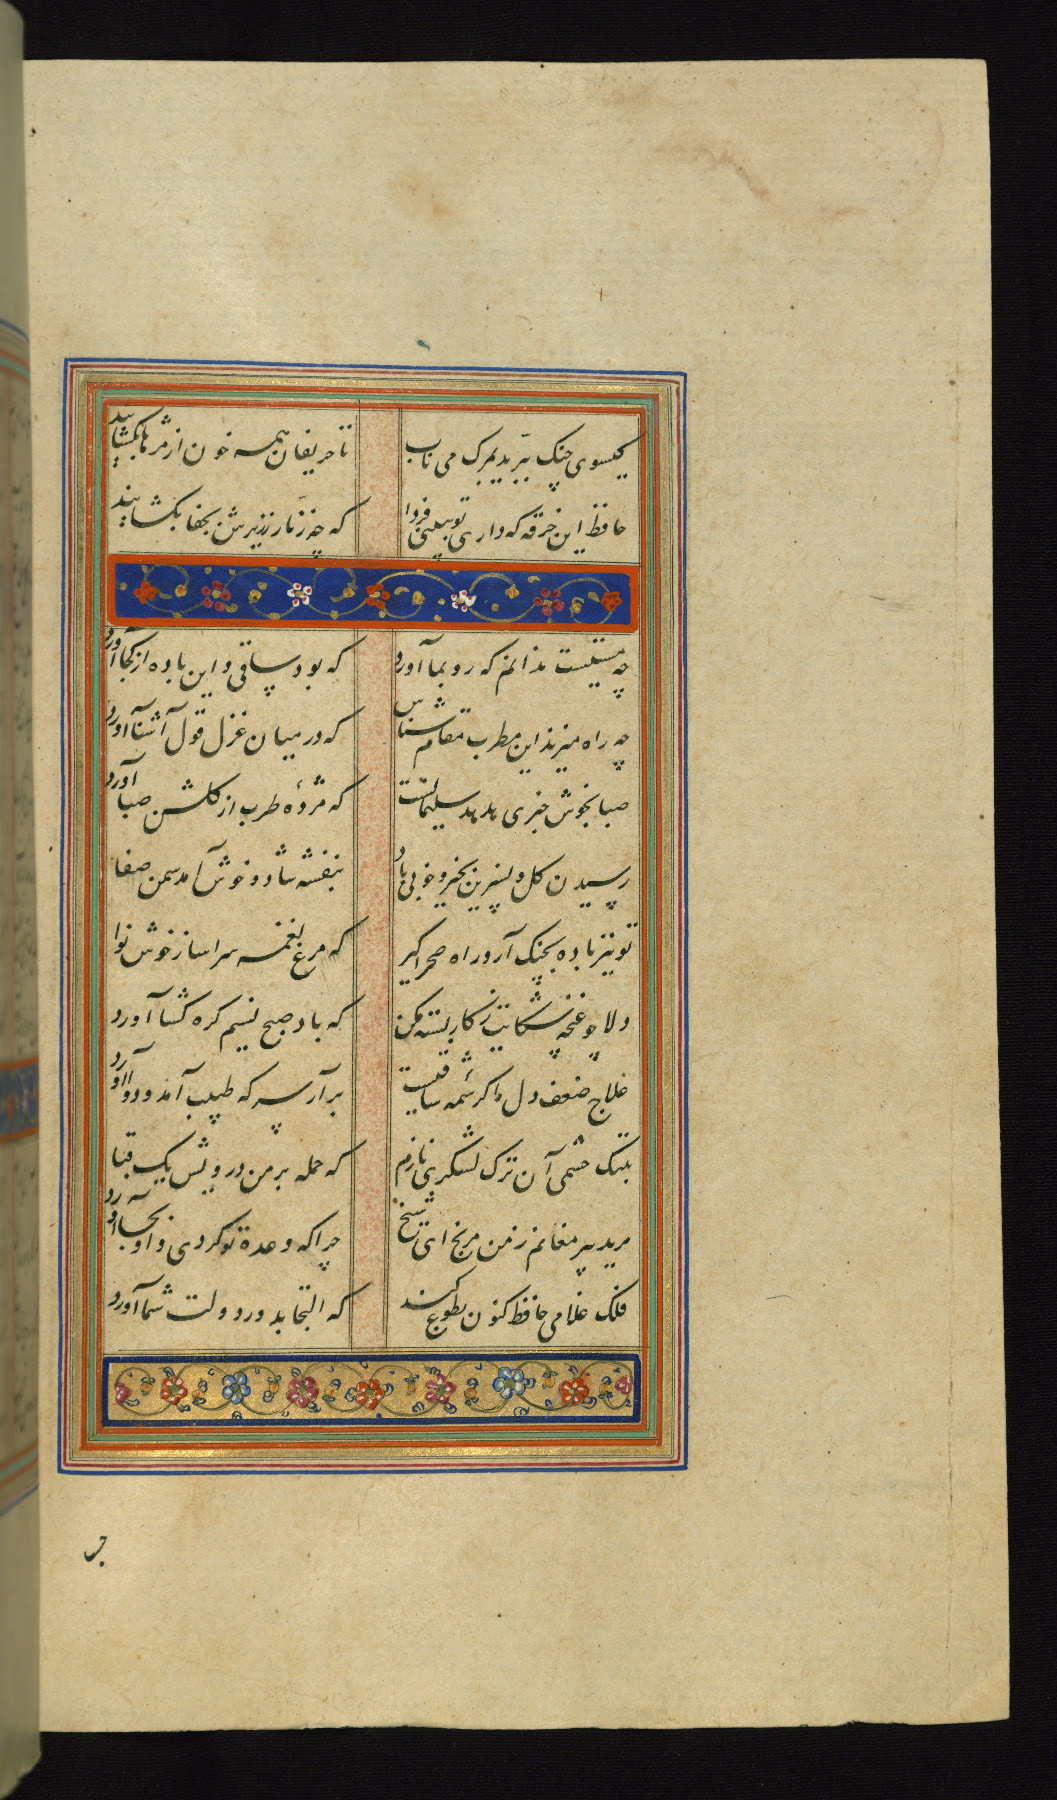 گیسوی چنک ببرید بمرک می ناب تا حریفان همه خون از مژها بگشایند
حافظ این خرقه که داری تو ببینی فردا که چه زنار ززیرش بجفا بگشایند
چه مستیست ندانم که رو بما آورد که بود ساقی و این باده از کجا آورد
چه راه میزند این مطرب مقام شناس که در میان غزل قول آشنا آورد
صبا بخوش خبری هدهد سلیمانست که مژدهٔ طرب از کلشن صبا آورد
رسیدن کل و نسرین بخیر و خوبی باد بنفشه شاد و خوش آمد سمن صفا
تو نیز باده بچنک آر و راه صحرا کیر که مرغ نغمه سرا ساز خوش نوا
دلا چو غنچه شکایت ز کار بسته مکن که باد صبح نسیم کره کشا آورد
علاج ضعف دل ما کرشمه ساقیست برآر سر که طبیب آمد و دوا آورد
بتنک چشمی آن ترک لشکری نازم که حمله بر من درویش یک قبا
مرید پیر مغانم ز من مرنج ای شیخ چرا که وعده تو کردی و او بجا آورد
فلک غلامی حافظ کنون بطوع کند که التجا بدر دولت شما آورد